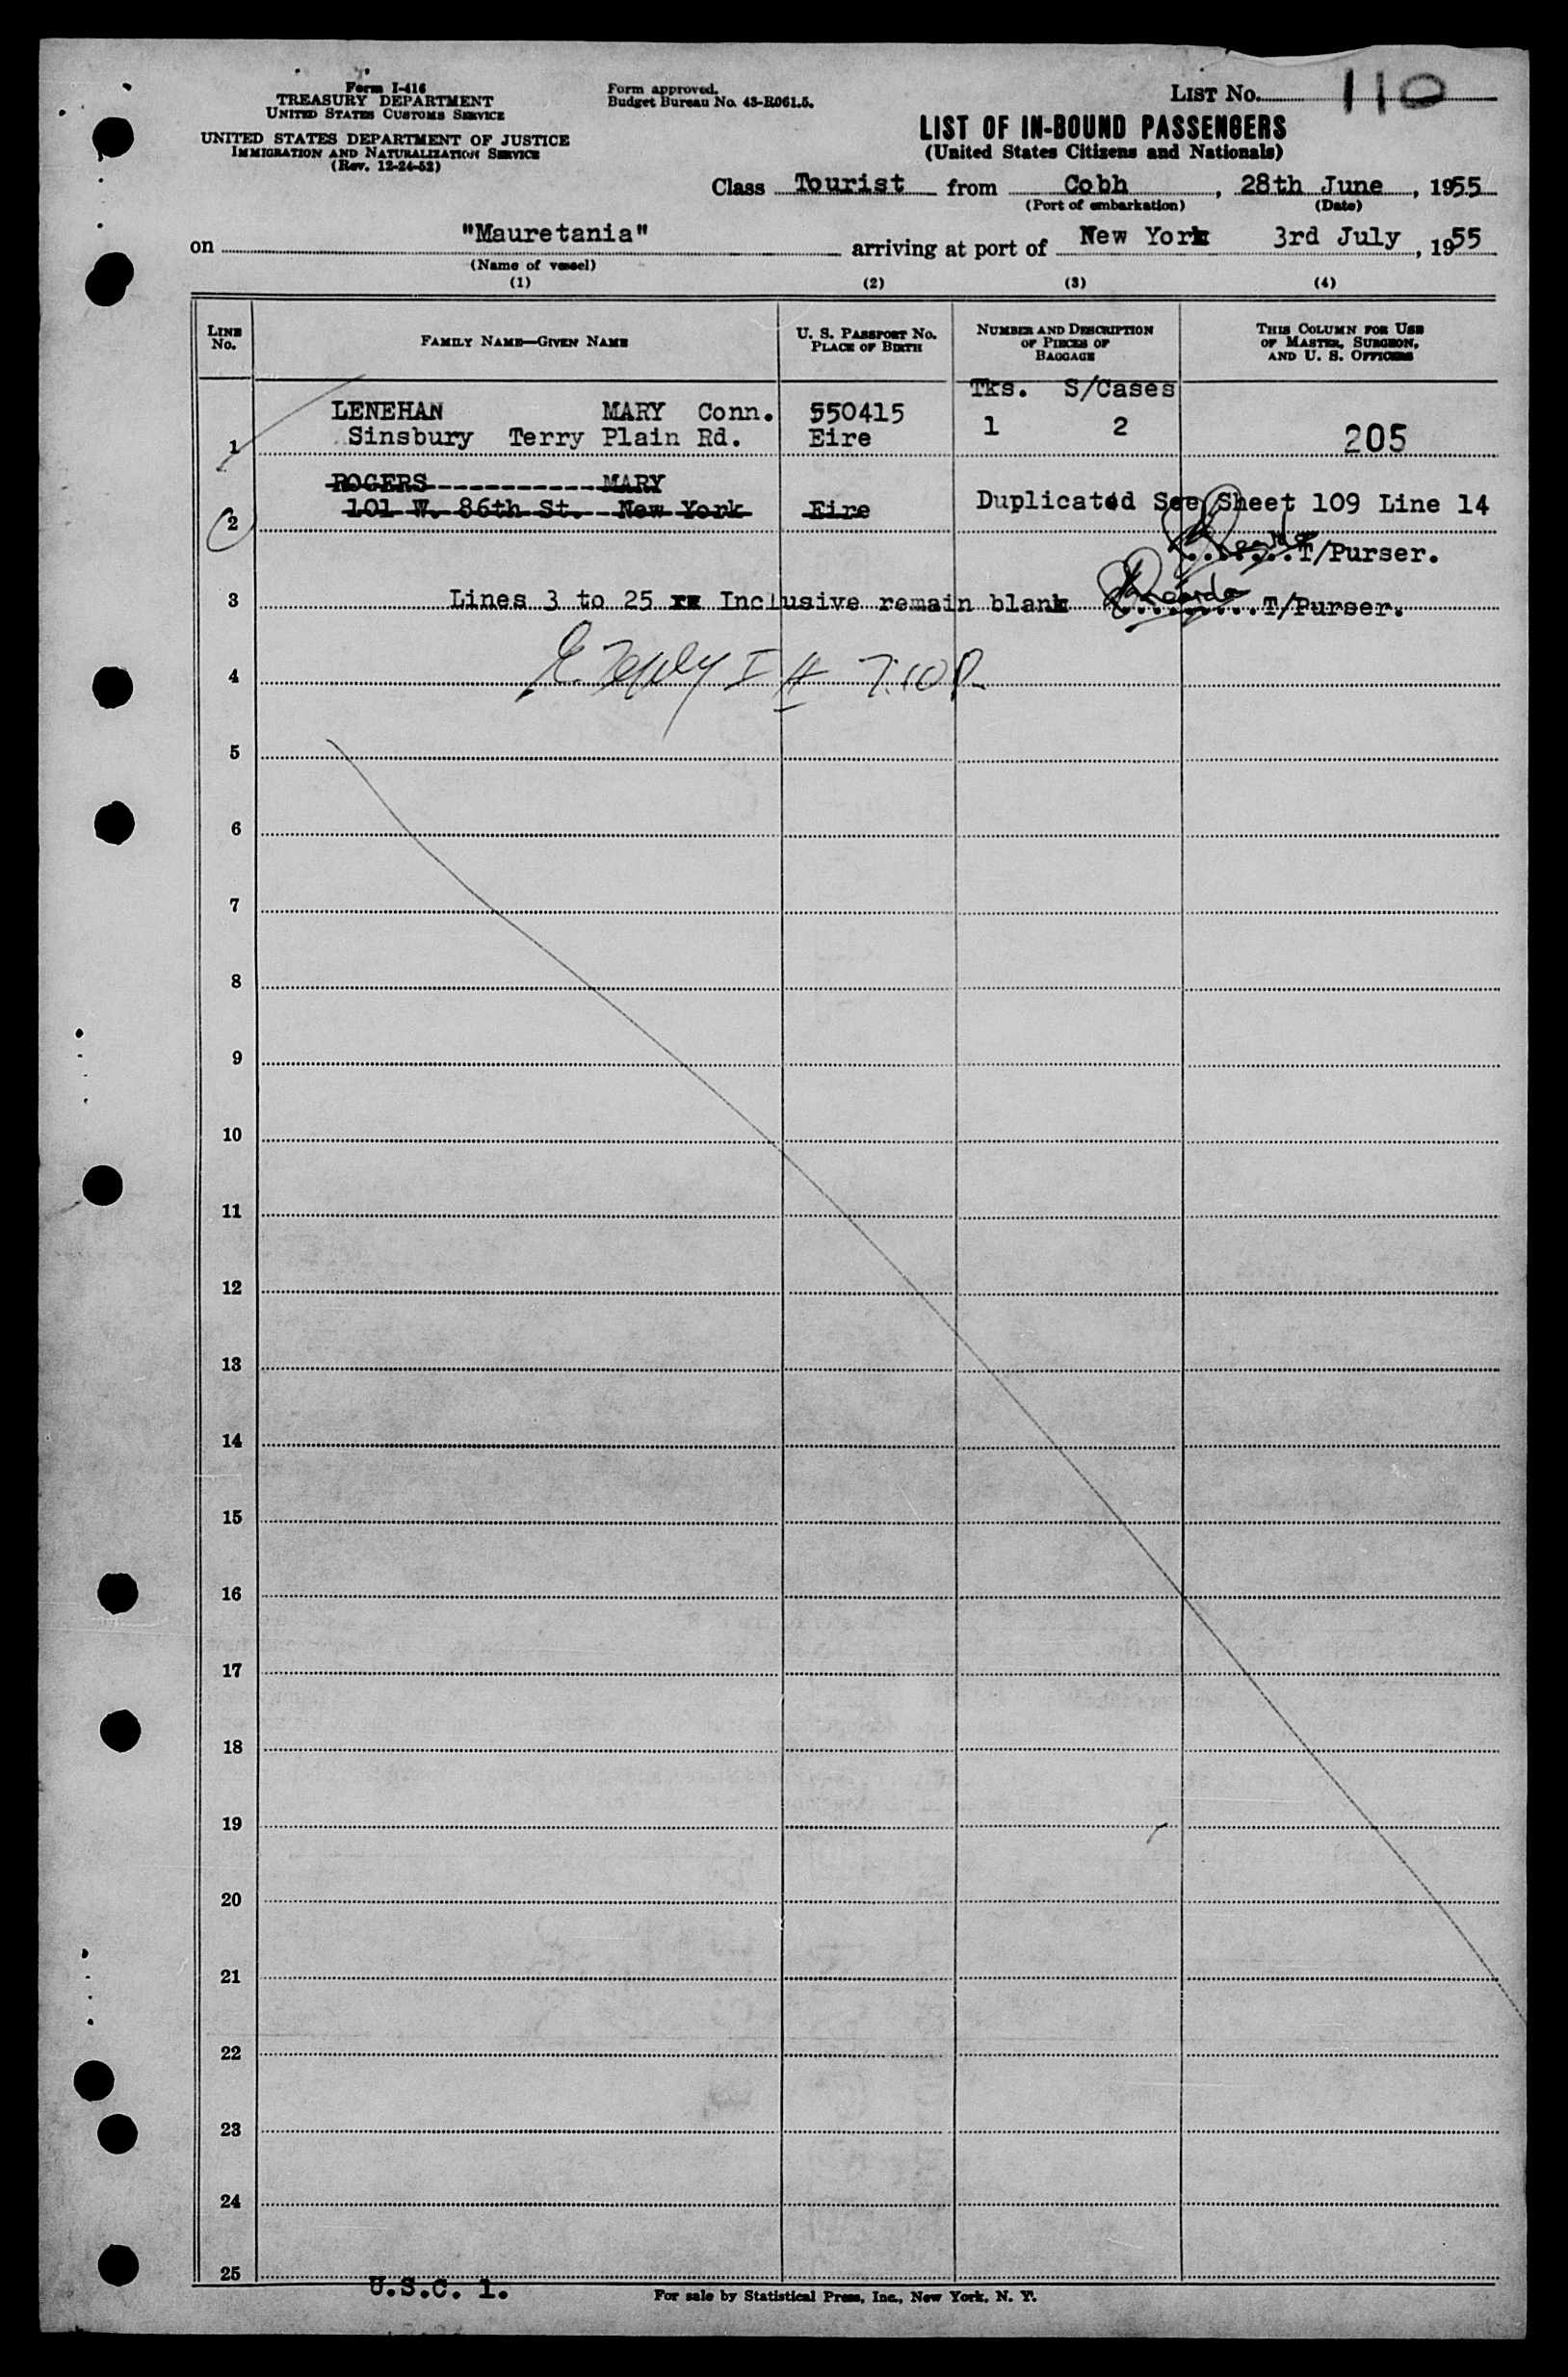 Form I-416
TREASURY DEPARTMENT
UNITED STATES CUSTOMS SERVICE
UNITED STATES DEPARTMENT OF JUSTICE
IMMIGRATION AND NATURALIZATION SERVICE
(Rev. 12-24-52)
Form approved.
Budget Bureau No. 43-R061.5.
LIST NO. 110
LIST OF IN-BOUND PASSENGERS
(United States Citizens and Nationals)
Class Tourist from Cobh, 28th June, 1955
(Port of embarkation) (Date)
on "Mauretania" arriving at port of New York 3rd July, 1955
(Name of vessel)
(1) (2) (3) (4)
LINE NO.
FAMILY NAME—GIVEN NAME
U. S. PASSPORT NO.
PLACE OF BIRTH
NUMBER AND DESCRIPTION
OF PIECES OF
BAGGAGE
THIS COLUMN FOR USE
OF MASTER, SURGEON,
AND U. S. OFFICERS
Tks. S/Cases
LENEHAN MARY Conn. 550415
1 Sinsbury Terry Plain Rd. Eire 1 2 205
ROGERS------------MARY
2 101 W. 86th St. New York Eire Duplicated See Sheet 109 Line 14
T/Purser.
3 Lines 3 to 25 xx Inclusive remain blank T/Purser.
4 7:10 P
5
6
7
8
9
10
11
12
13
14
15
16
17
18
19
20
21
22
23
24
25
U.S.C. 1.
For sale by Statistical Press, Inc., New York, N. Y.